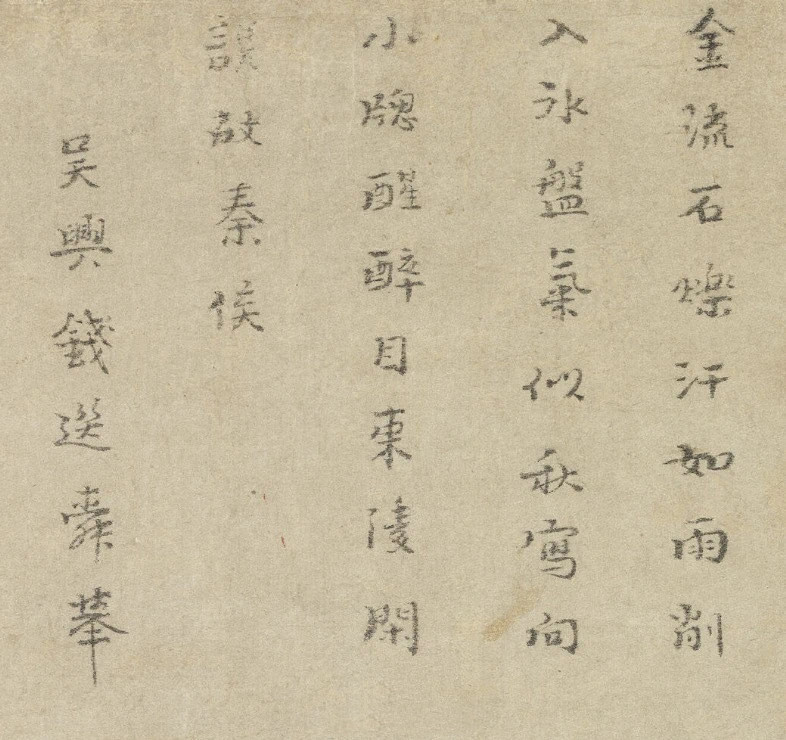 金流石爍汗如雨削
入氷盤氣似秋寫向
小牕醒醉目東陵閑
說故秦侯
吳興錢選舜舉